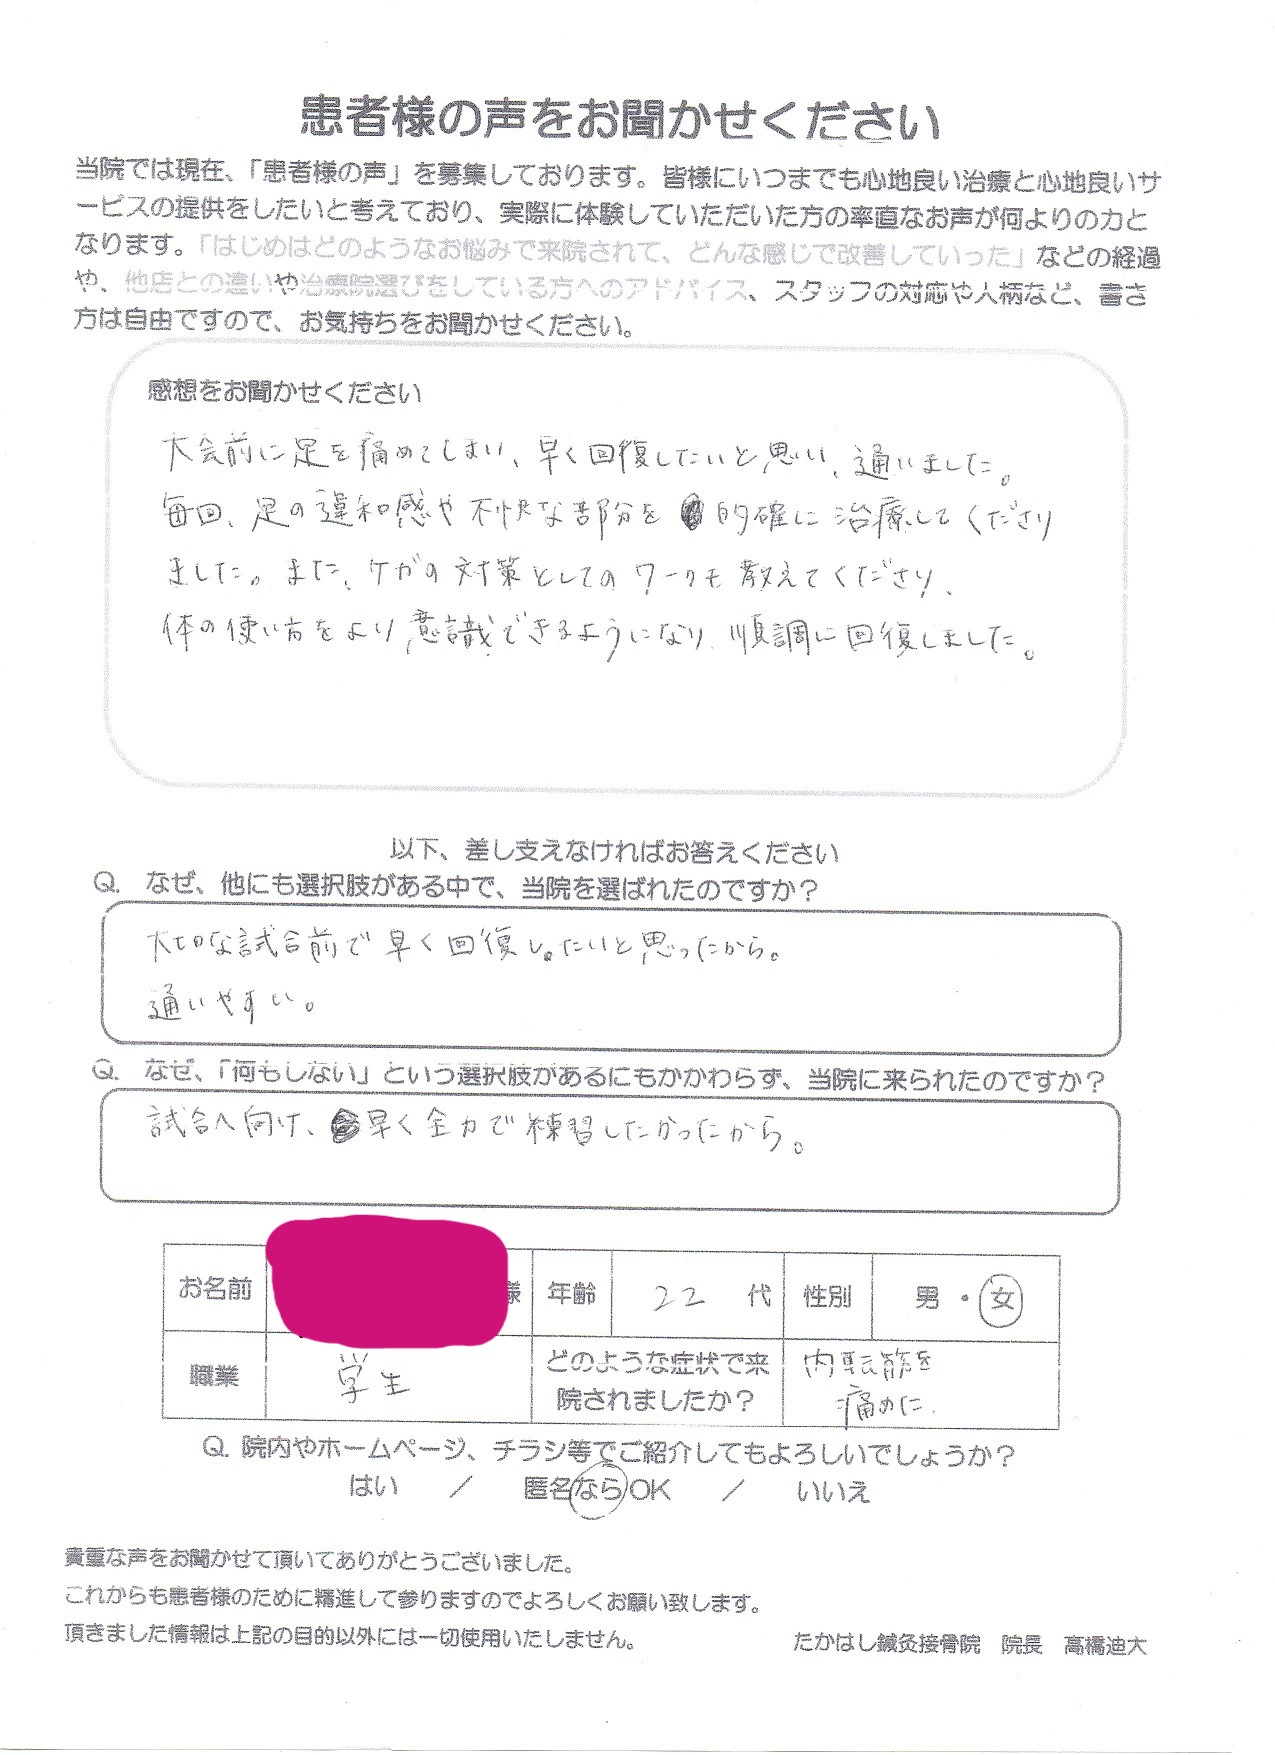 患者様の声をお聞かせください
当院では現在、「患者様の声」を募集しております。皆様にいつまでも心地良い治療と心地良いサ
ービスの提供をしたいと考えており、実際に体験していただいた方の率直なお声が何よりの力と
なります。「はじめはどのようなお悩みで来院されて、どんな感じで改善していった」などの経過
や、他店との違いや治療院選びをしている方へのアドバイス、スタッフの対応や人柄など、書き
方は自由ですので、お気持ちをお聞かせください。
感想をお聞かせください
大会前に足を痛めてしまい、早く回復したいと思い、通いました。
毎回、足の違和感や不快な部分を的確に治療してくださり
ました。また、ケガの対策としてのワークも教えてくださり、
体の使い方をより意識できるようになり、順調に回復しました。
以下、差し支えなければお答えください
Q. なぜ、他にも選択肢がある中で、当院を選ばれたのですか？
大切な試合前で早く回復したいと思ったから。
通いやすい。
Q. なぜ、「何もしない」という選択肢があるにもかかわらず、当院に来られたのですか？
試合へ向け、早く全力で練習したかったから。
お名前 様 年齢 22 代 性別 男・女
職業 学生 どのような症状で来院されましたか？ 内転筋を痛めた.
Q. 院内やホームページ、チラシ等でご紹介してもよろしいでしょうか？
はい / 匿名ならOK / いいえ
貴重な声をお聞かせて頂いてありがとうございました。
これからも患者様のために精進して参りますのでよろしくお願い致します。
頂きました情報は上記の目的以外には一切使用いたしません。 たかはし鍼灸接骨院 院長 高橋迪大